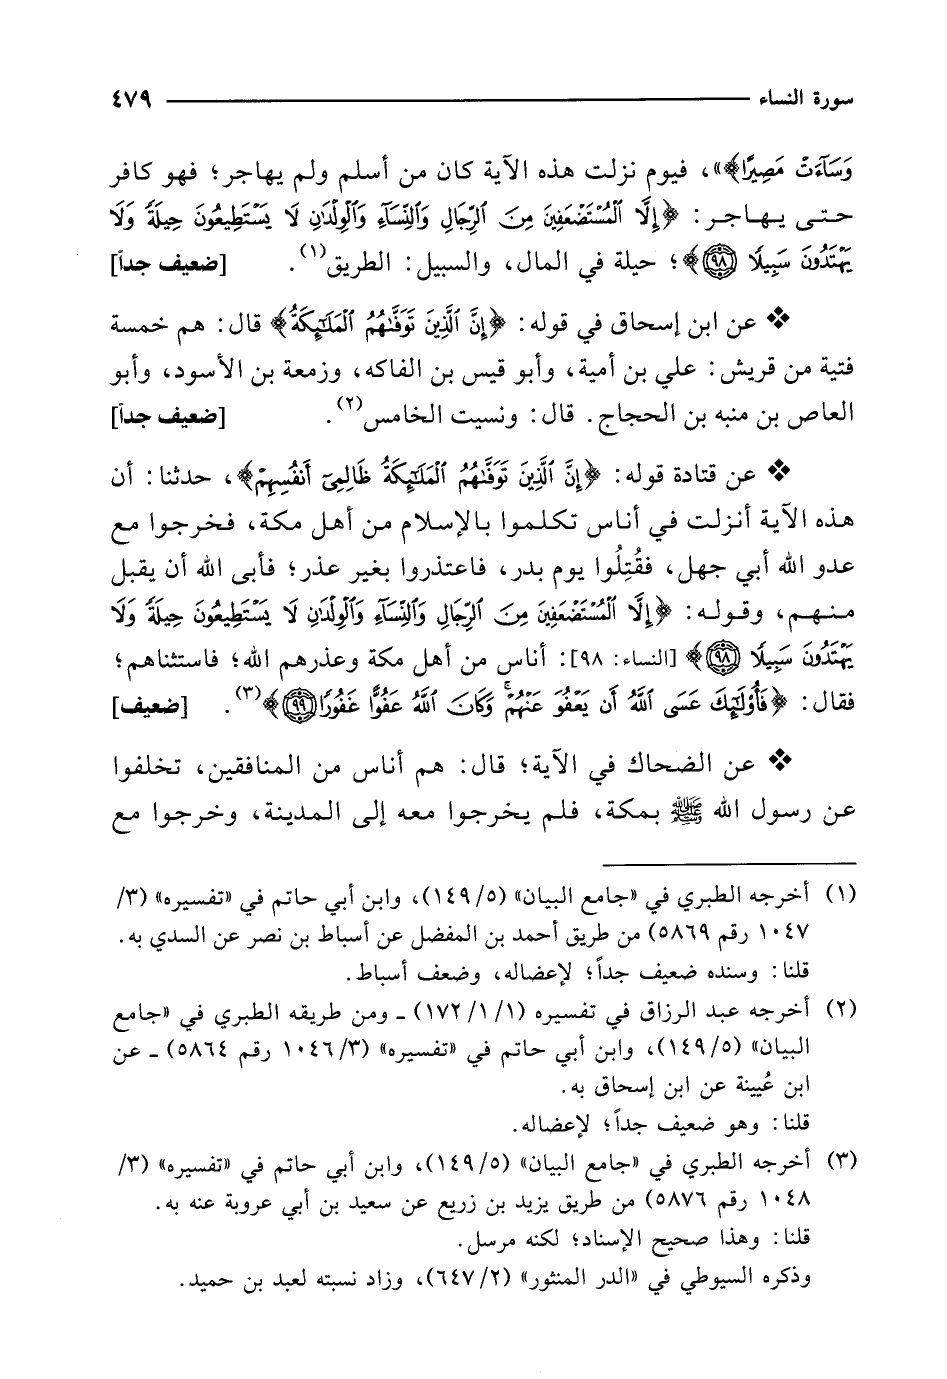 سورة النساء ٤٧٩
وَسَآءَتْ مَصِيرًا﴾»، فيوم نزلت هذه الآية كان من أسلم ولم يهاجر؛ فهو كافر
حتى يهاجر: ﴿إِلَّا ٱلْمُسْتَضْعَفِينَ مِنَ ٱلرِّجَالِ وَٱلنِّسَآءِ وَٱلْوِلْدَٰنِ لَا يَسْتَطِيعُونَ حِيلَةً وَلَا
يَهْتَدُونَ سَبِيلًا ۝٩٨﴾؛ حيلة في المال، والسبيل: الطريق(١). [ضعيف جداً]
❖ عن ابن إسحاق في قوله: ﴿إِنَّ ٱلَّذِينَ تَوَفَّىٰهُمُ ٱلْمَلَٰٓئِكَةُ﴾ قال: هم خمسة
فتية من قريش: علي بن أمية، وأبو قيس بن الفاكه، وزمعة بن الأسود، وأبو
العاص بن منبه بن الحجاج. قال: ونسيت الخامس(٢). [ضعيف جداً]
❖ عن قتادة قوله: ﴿إِنَّ ٱلَّذِينَ تَوَفَّىٰهُمُ ٱلْمَلَٰٓئِكَةُ ظَالِمِىٓ أَنفُسِهِمْ﴾، حدثنا: أن
هذه الآية أنزلت في أناس تكلموا بالإسلام من أهل مكة، فخرجوا مع
عدو الله أبي جهل، فقُتِلُوا يوم بدر، فاعتذروا بغير عذر؛ فأبى الله أن يقبل
منهم، وقوله: ﴿إِلَّا ٱلْمُسْتَضْعَفِينَ مِنَ ٱلرِّجَالِ وَٱلنِّسَآءِ وَٱلْوِلْدَٰنِ لَا يَسْتَطِيعُونَ حِيلَةً وَلَا
يَهْتَدُونَ سَبِيلًا ۝٩٨﴾ [النساء: ٩٨]: أناس من أهل مكة وعذرهم الله؛ فاستثناهم؛
فقال: ﴿فَأُو۟لَٰٓئِكَ عَسَى ٱللَّهُ أَن يَعْفُوَ عَنْهُمْ ۚ وَكَانَ ٱللَّهُ عَفُوًّا غَفُورًا ۝٩٩﴾(٣). [ضعيف]
❖ عن الضحاك في الآية؛ قال: هم أناس من المنافقين، تخلفوا
عن رسول الله ﷺ بمكة، فلم يخرجوا معه إلى المدينة، وخرجوا مع
(١) أخرجه الطبري في «جامع البيان» (١٤٩/٥)، وابن أبي حاتم في «تفسيره» (٣/
١٠٤٧ رقم ٥٨٦٩) من طريق أحمد بن المفضل عن أسباط بن نصر عن السدي به.
قلنا: وسنده ضعيف جداً؛ لإعضاله، وضعف أسباط.
(٢) أخرجه عبد الرزاق في تفسيره (١/١/ ١٧٢) ـ ومن طريقه الطبري في «جامع
البيان» (١٤٩/٥)، وابن أبي حاتم في «تفسيره» (١٠٤٦/٣ رقم ٥٨٦٤) ـ عن
ابن عُيينة عن ابن إسحاق به.
قلنا: وهو ضعيف جداً؛ لإعضاله.
(٣) أخرجه الطبري في «جامع البيان» (١٤٩/٥)، وابن أبي حاتم في «تفسيره» (٣/
١٠٤٨ رقم ٥٨٧٦) من طريق يزيد بن زريع عن سعيد بن أبي عروبة عنه به.
قلنا: وهذا صحيح الإسناد؛ لكنه مرسل.
وذكره السيوطي في «الدر المنثور» (٦٤٧/٢)، وزاد نسبته لعبد بن حميد.